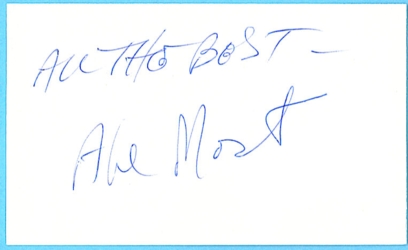 ALL THE BEST –
Abe Most